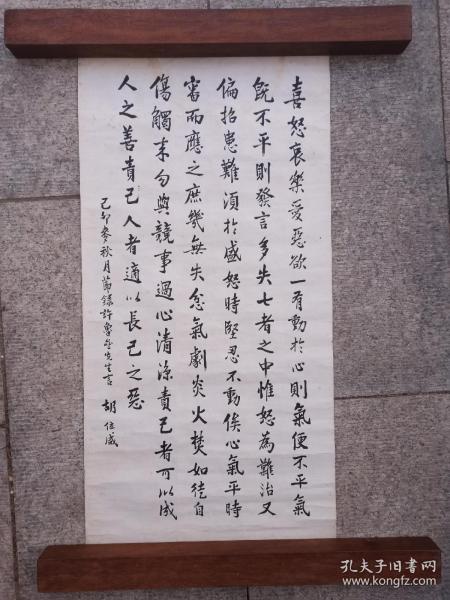 喜怒哀樂愛惡欲一有動於心則氣便不平氣
既不平則發言多失七者之中惟怒為難治又
偏招患難須於盛怒時堅忍不動俟心氣平時
審而應之庶幾無失忿氣劇炎火焚如徒自
傷觸來勿與競事過心清涼責己者可以成
人之善責己人者適以長己之惡
己卯麥秋月節錄許魯齋先生言 胡
孔夫子旧书网
www.kongfz.com